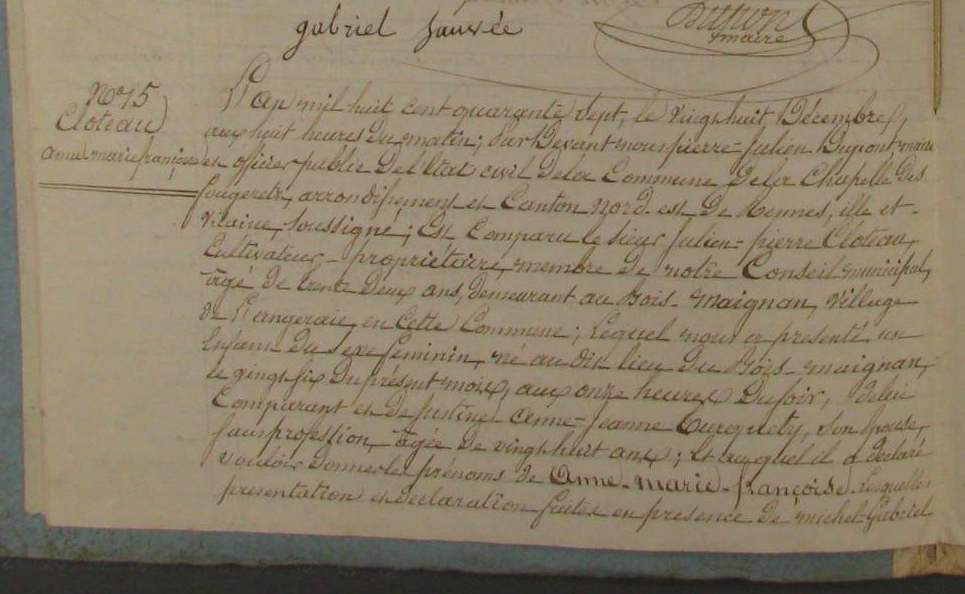 gabriel fauvée
Dupont
maire
No 75
Cloteau
anne marie françoise
L'an mil huit cent quarante sept, le vingt huit Décembre,
aux huit heures du matin; Par Devant nous pierre-Julien Dupont maire
et officier public De l'état civil De la Commune De la Chapelle Des
fougeretz, arrondissement et Canton nord-est De Rennes, ille et-
Vilaine, soussigné; Est Comparu le sieur Julien-pierre Cloteau,
Cultivateur-propriétaire, membre de notre Conseil municipal,
âgé De trente Deux ans, demeurant au Bois-maignan, Village
De l'angeraie, en cette Commune; Lequel nous a presenté un
Enfant Du Sexe feminin, né au dit lieu Du Bois-maignan,
le vingt six Du présent mois, aux onze heures Du soir, De lui
Comparant et De Justine-Anne-Jeanne Turquety, Son Epouse,
sans profession, âgée De vingt huit ans; Et auquel il a déclaré
vouloir donner les prénoms de Anne-marie-françoise. Lesquelles
presentation et déclaration faites en presence De michel-Gabriel